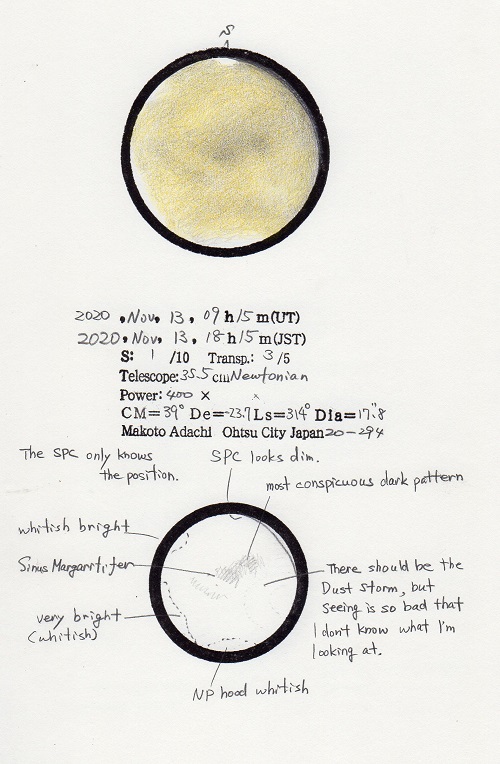 S
2020, Nov, 13, 09 h 15 m(UT)
2020, Nov, 13, 18 h 15 m(JST)
S: 1 /10 Transp.: 3 /5
Telescope: 35.5 cm Newtonian
Power: 400 × ×
CM=39° De=-23.7 Ls=314° Dia=17".8
Makoto Adachi Ohtsu City Japan 20-294
The SPC only knows
the position.
SPC looks dim.
most conspicuous dark pattern
whitish bright
Sinus Margarrtifer
There should be the
Dust Storm, but
Seeing is so bad that
I don't know what I'm
looking at.
very bright
(whitish)
NP hood whitish